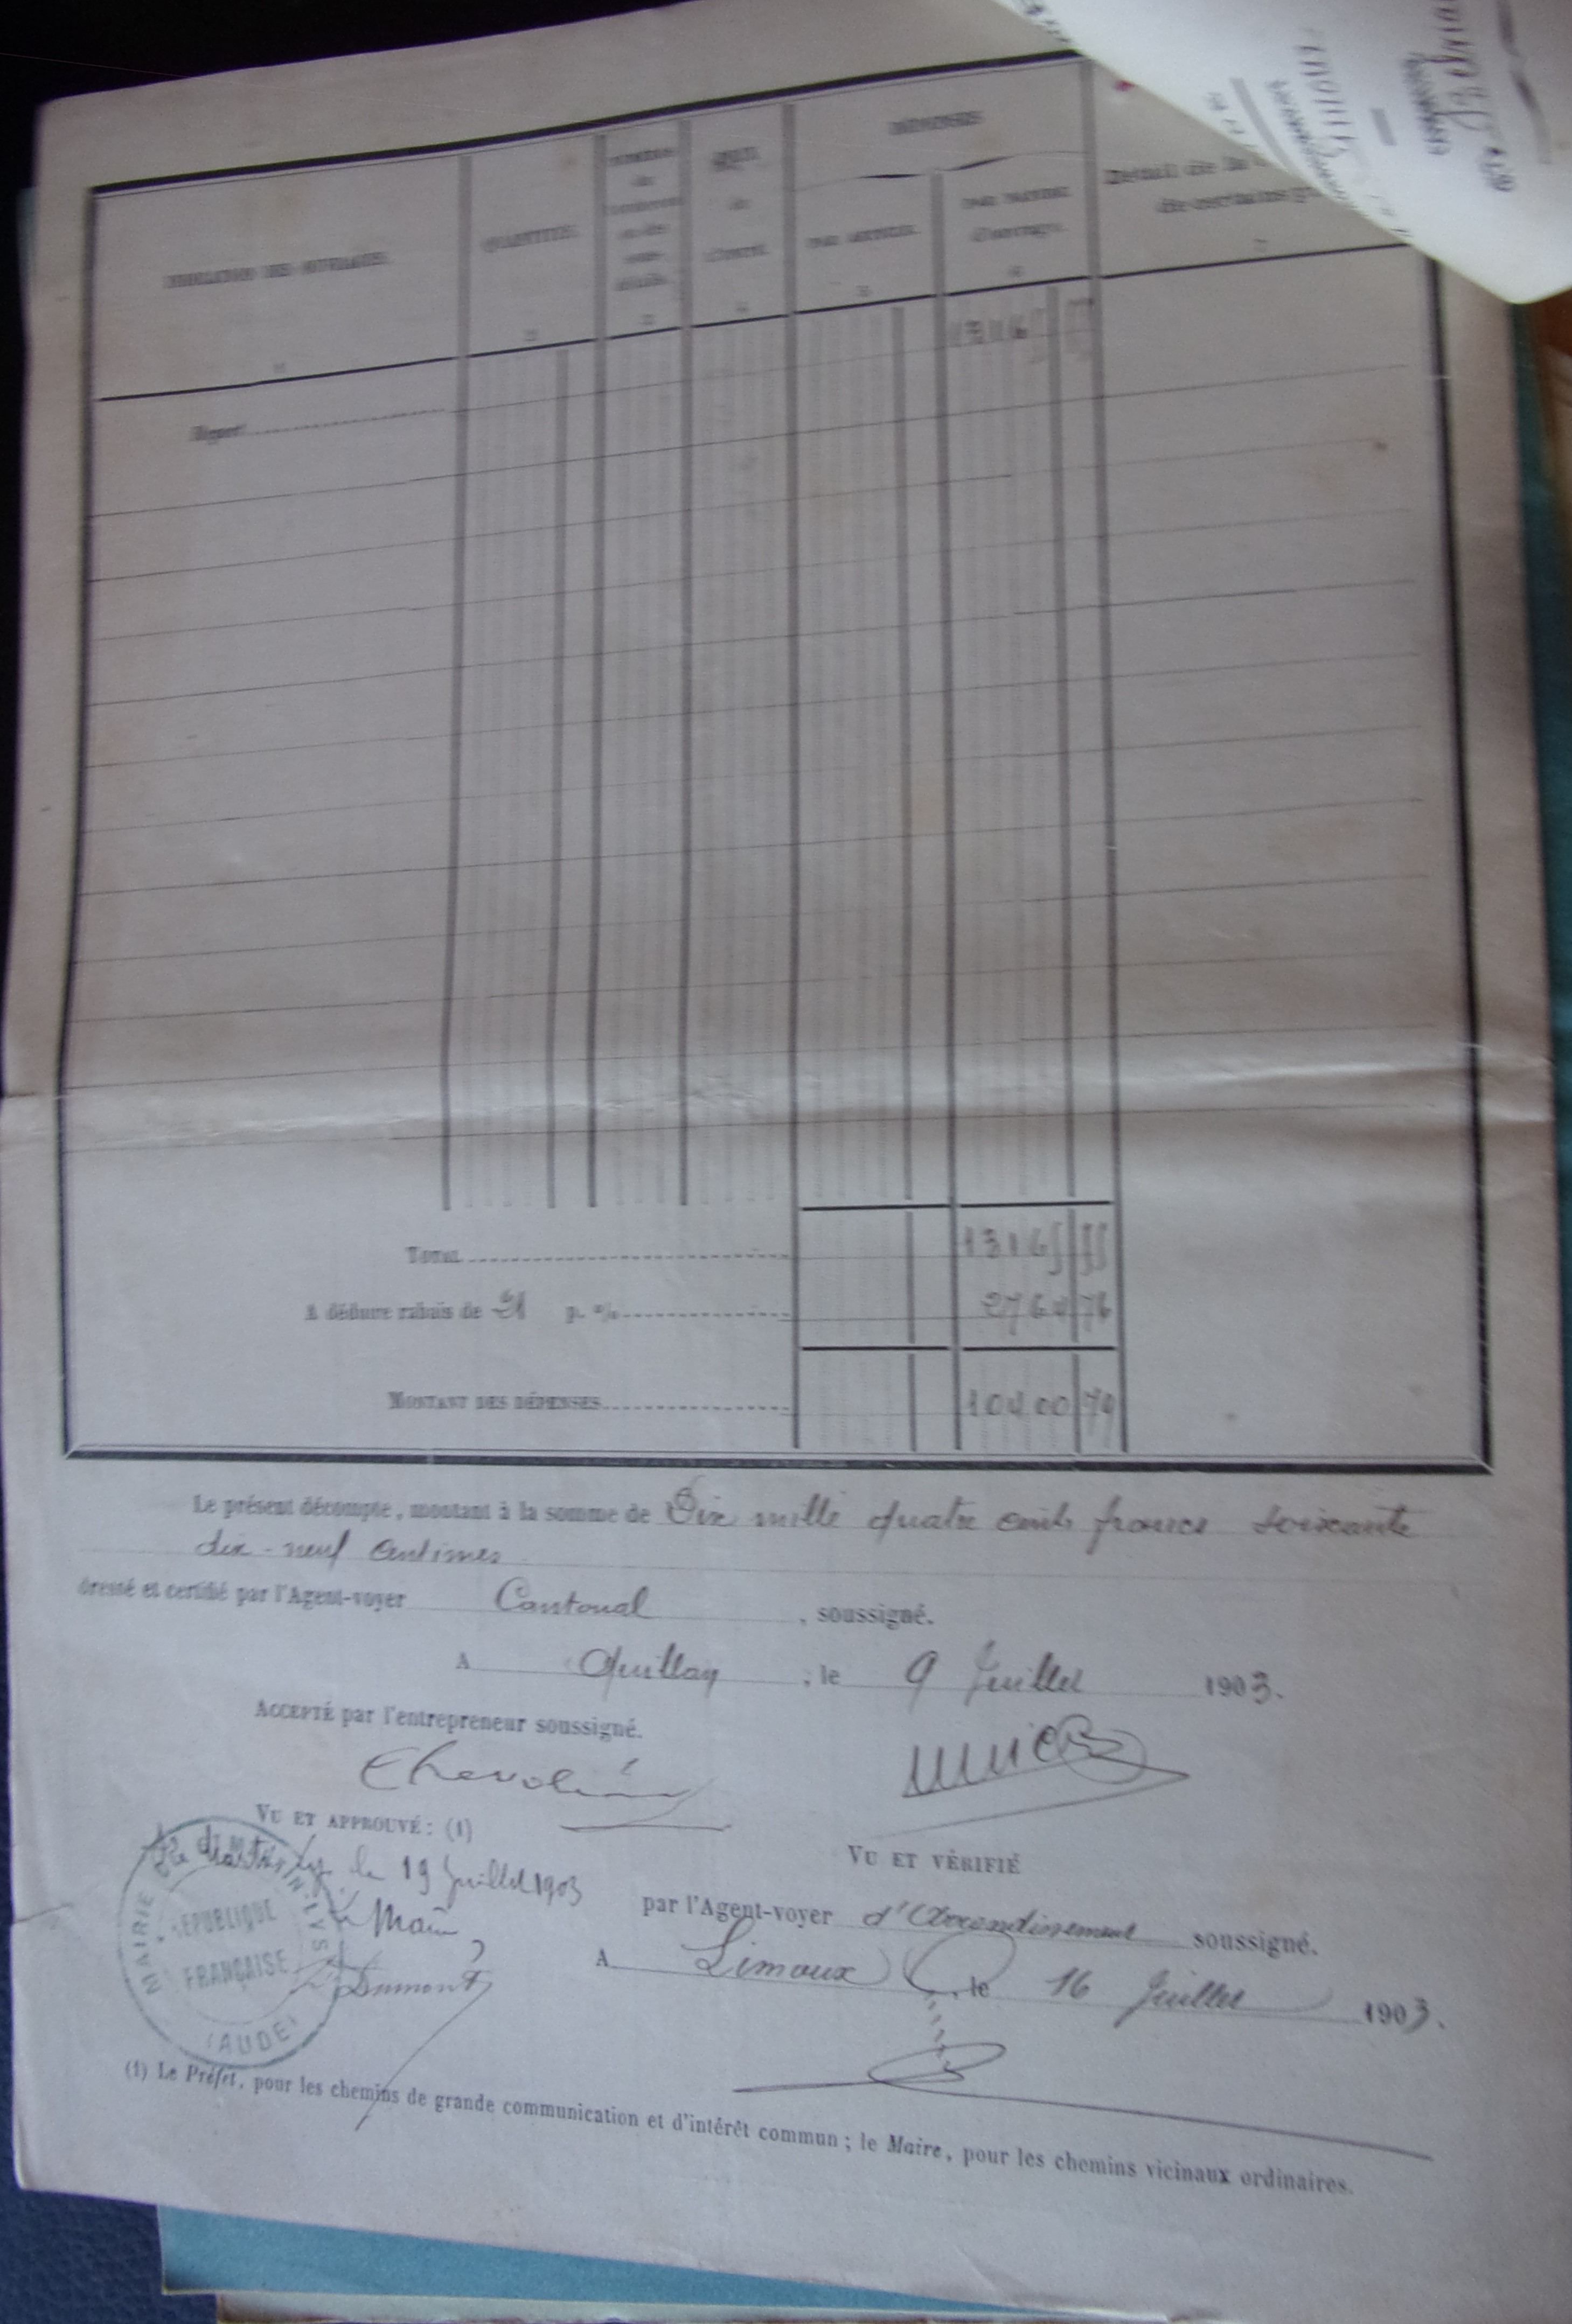 INDICATION DES OUVRAGES.
QUANTITÉS.
DÉPENSES
PAR ARTICLE.
PAR NATURE
d'ouvrage.
Détail de la
de certains
1
2
3
4
5
6
7
Report
13165 55
TOTAL 13165 55
A déduire rabais de 21 p. % 2764 76
MONTANT DES DÉPENSES 10400 79
Le présent décompte, montant à la somme de Dix mille quatre cents francs soixante
dix-neuf centimes
dressé et certifié par l'Agent-voyer Cantonal, soussigné.
A Quillan, le 9 Juillet 1903.
ACCEPTÉ par l'entrepreneur soussigné.
VU ET APPROUVÉ : (1)
le 19 Juillet 1903
Le Maire,
Dumont
MAIRIE DE St MARTIN-LYS
RÉPUBLIQUE
FRANÇAISE
(AUDE)
VU ET VÉRIFIÉ
par l'Agent-voyer d'Arrondissement soussigné.
A Limoux, le 16 Juillet 1903.
(1) Le Préfet, pour les chemins de grande communication et d'intérêt commun ; le Maire, pour les chemins vicinaux ordinaires.